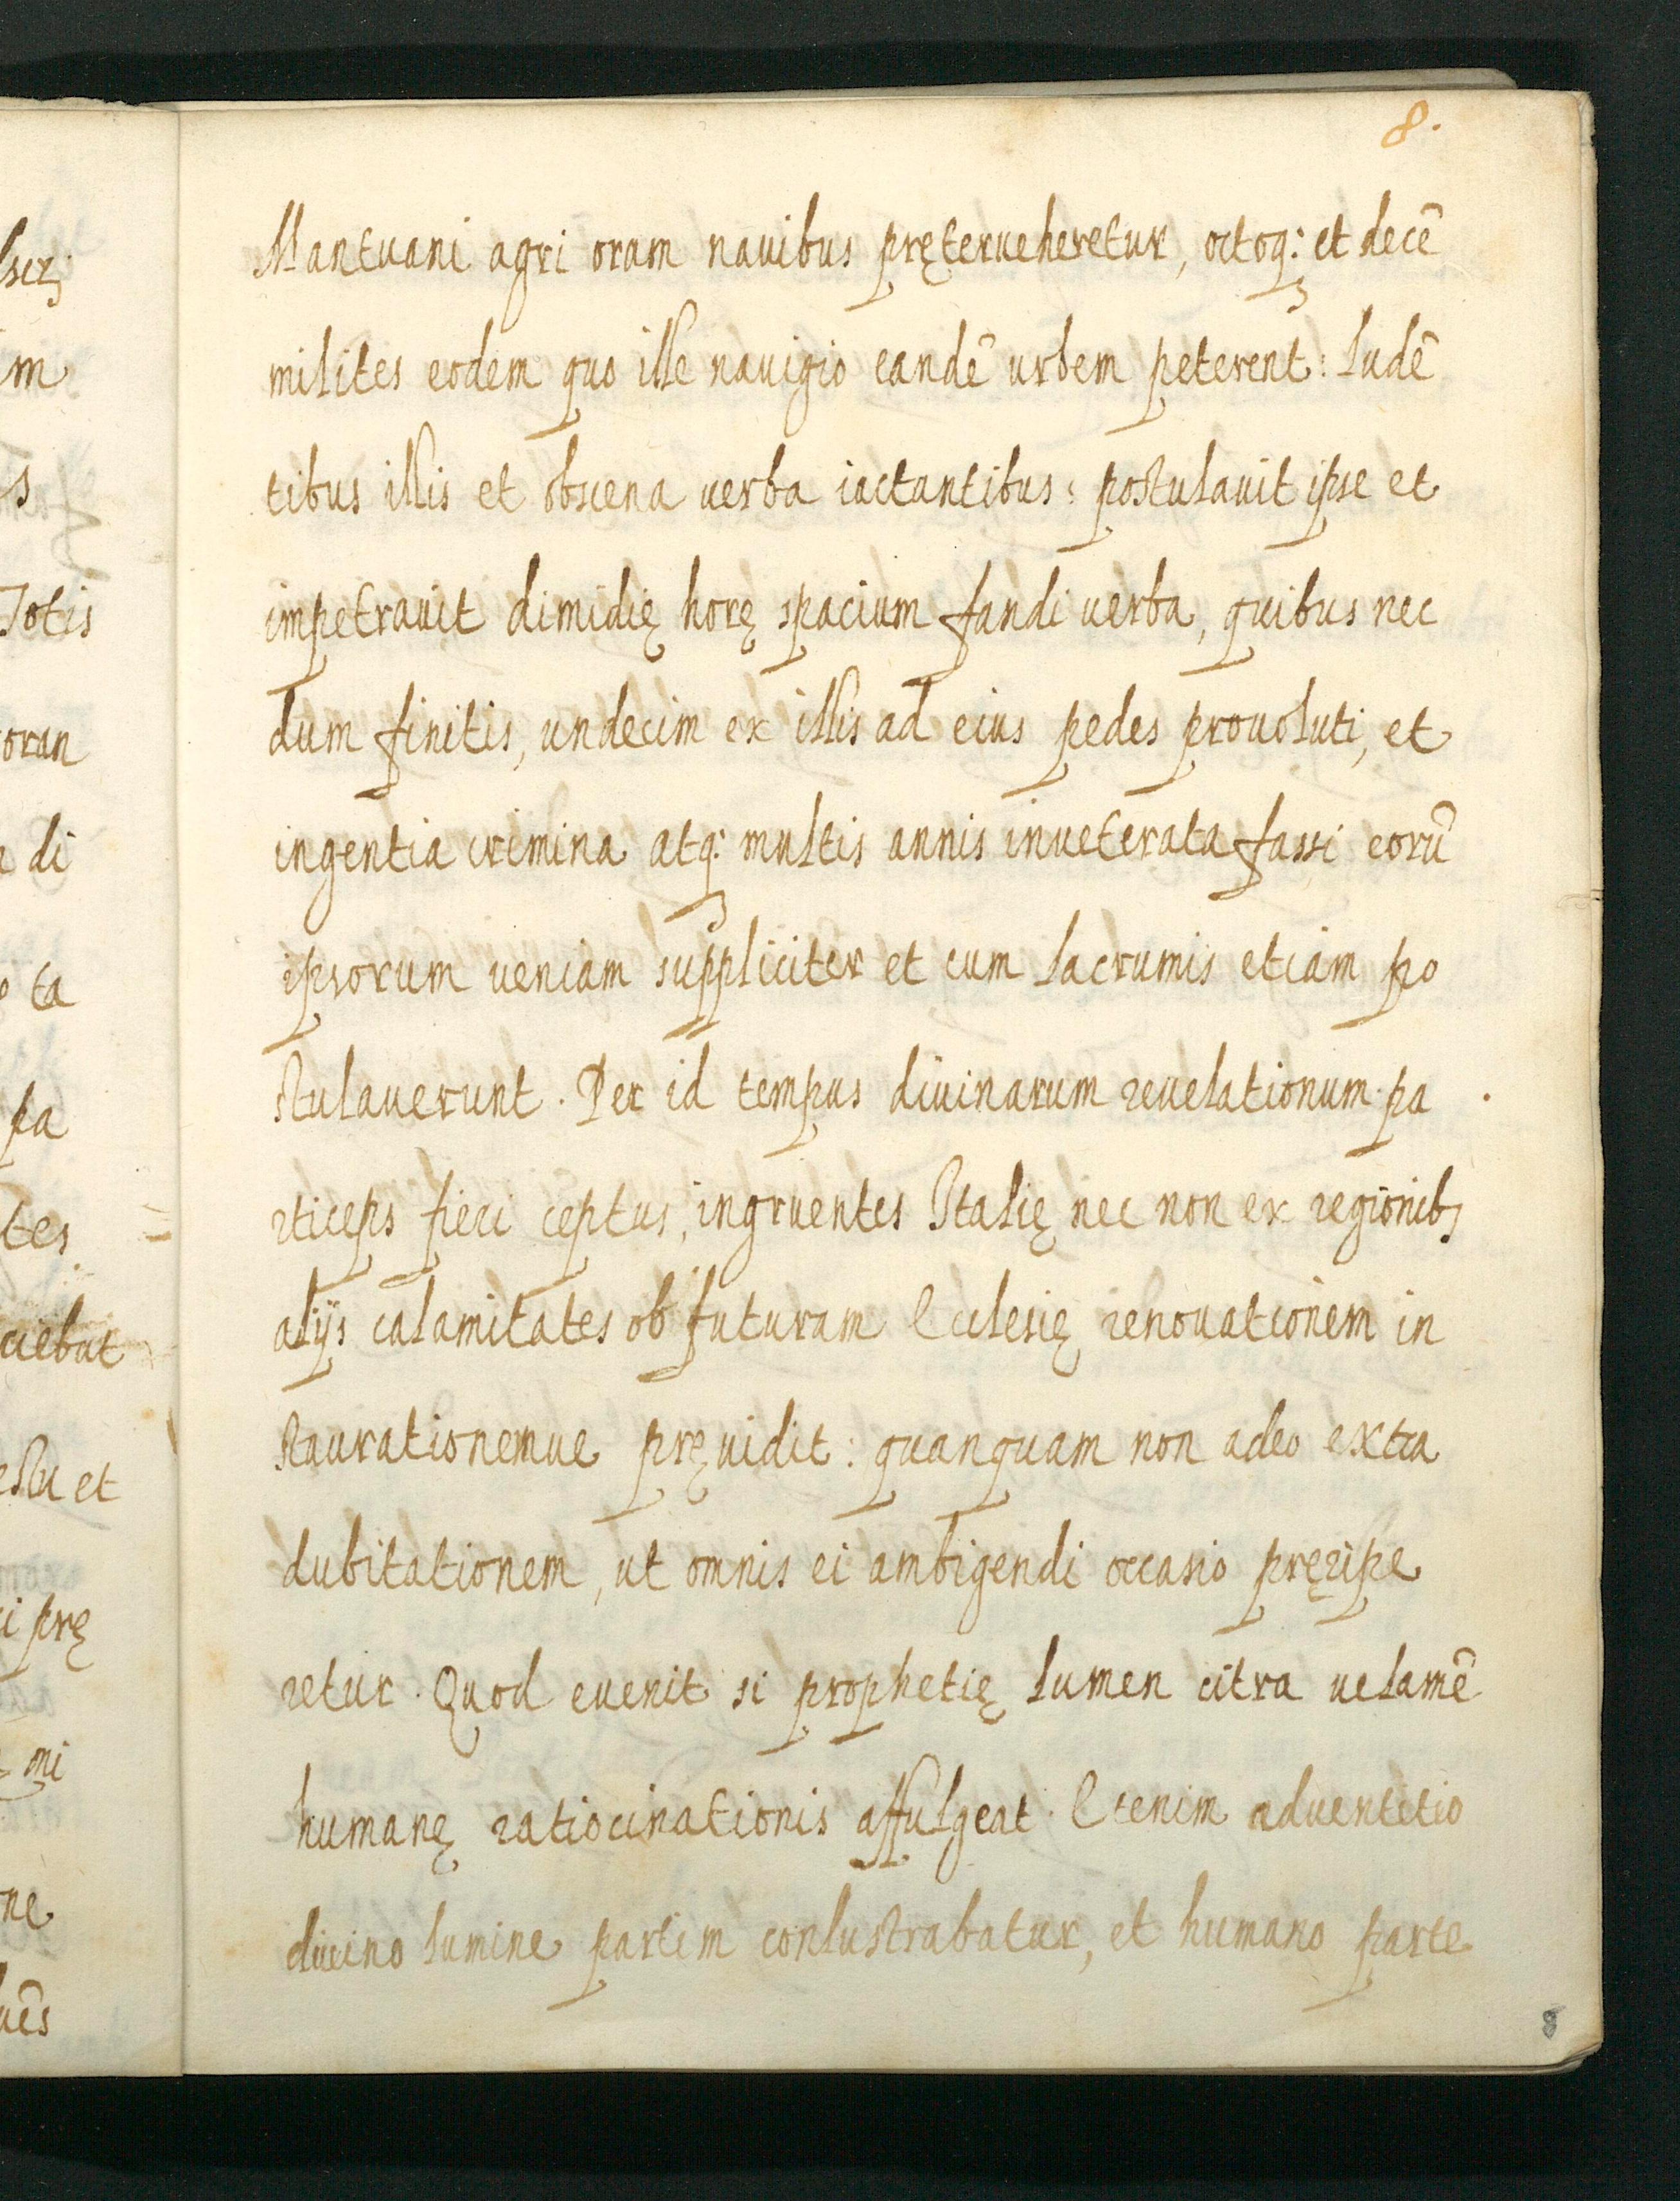 8.
Mantuani agri oram nauibus pręterueheretur, octoq: et decē
milites eodem quo ille nauigio eandē urbem peterent: ludē
tibus illis et obscena uerba iactantibus: postulauit ipse et
impetrauit dimidię horę spacium fandi uerba, quibus nec
dum finitis, undecim ex illis ad eius pedes prouoluti, et
ingentia crimina atq: multis annis inueterata fassi eorū
ipsorum ueniam suppliciter et cum lacrumis etiam po
stulauerunt. Per id tempus diuinarum reuelationum pa
rticeps fieri ceptus, ingruentes Italię nec non ex regionibꝫ
alijs calamitates ob futuram Ecclesię renouationem in
staurationemue pręuidit: quanquam non adeo extra
dubitationem, ut omnis ei ambigendi occasio pręripe
retur. Quod euenit si prophetię lumen citra uelamē
humanę ratiocinationis affulgeat. Etenim aduentitio
diuino lumine partim conlustrabatur, et humano parte
8